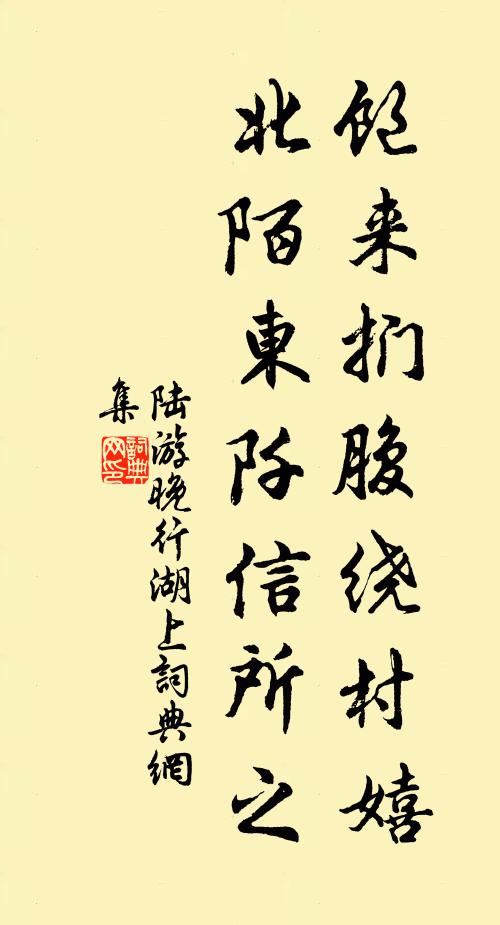 饱来扪腹绕村嬉
北陌東阡信所之
陆游晚行湖上詞典網
集
詞典网印